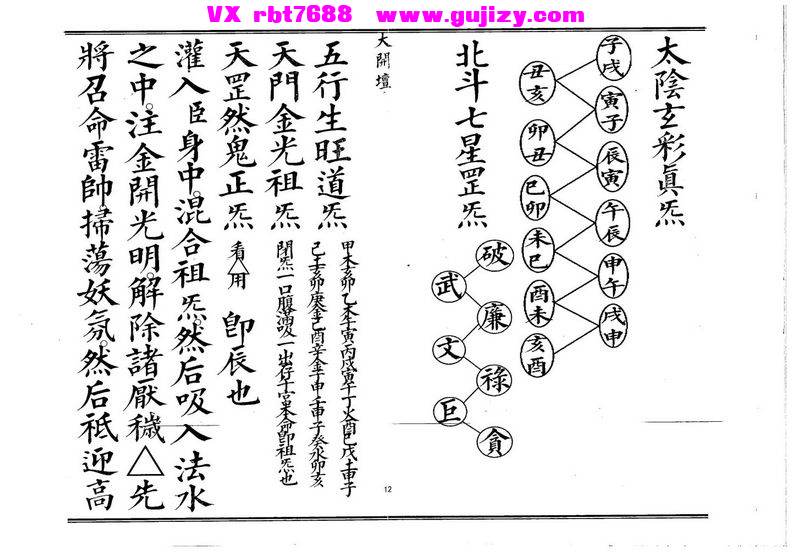 VX rbt7688 www.gujizy.com
太陰玄彩眞炁
子戌
寅子
辰寅
午辰
申午
戌申
丑亥
卯丑
巳卯
未巳
酉未
亥酉
北斗七星罡炁
破
武
廉
文
祿
巨
貪
大開壇
12
五行生旺道炁
甲木亥卯乙木午寅丙戌寅午丁火酉巳戊土申子
己土亥卯庚金巳酉辛金子申壬申子癸水卯亥
天門金光祖炁
閉炁一口腹滿吸一出存于宮本命卽祖炁也
天罡然鬼正炁 看△用 卽辰也
灌入臣身中。混合祖炁。然后吸入法水
之中。注金開光明。解除諸厭穢△先
將召命雷帥。掃蕩妖氛。然后祗迎高